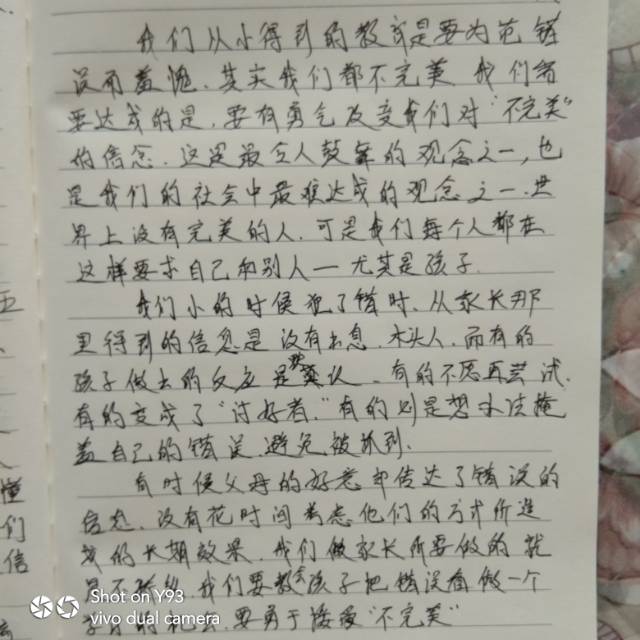 我们从小得到的教育是要为犯错
误而羞愧、其实我们都不完美 我们需
要达成的是，要有勇气改变我们对“不完美”
的信念．这是最令人鼓舞的观念之一，也
是我们的社会中最难达成的观念之一．世
界上没有完美的人．可是我们每个人都在
这样要求自己和别人—尤其是孩子．
我们小的时候犯了错时．从家长那
里得到的信息是 没有出息 木头人．而有的
孩子做出的反应是要默认．有的不愿再尝试．
有的变成了“讨好者．”有的则是想办法掩
盖自己的错误．避免被抓到．
有时候父母的好意却传达了错误的
信息．没有花时间考虑他们的方式所造
成的长期效果．我们做家长所要做的就
是不 我们要教会孩子把错误看做一个
学习的机会．要勇于接受“不完美”
五
懂
们
信
Shot on Y93
vivo dual camera